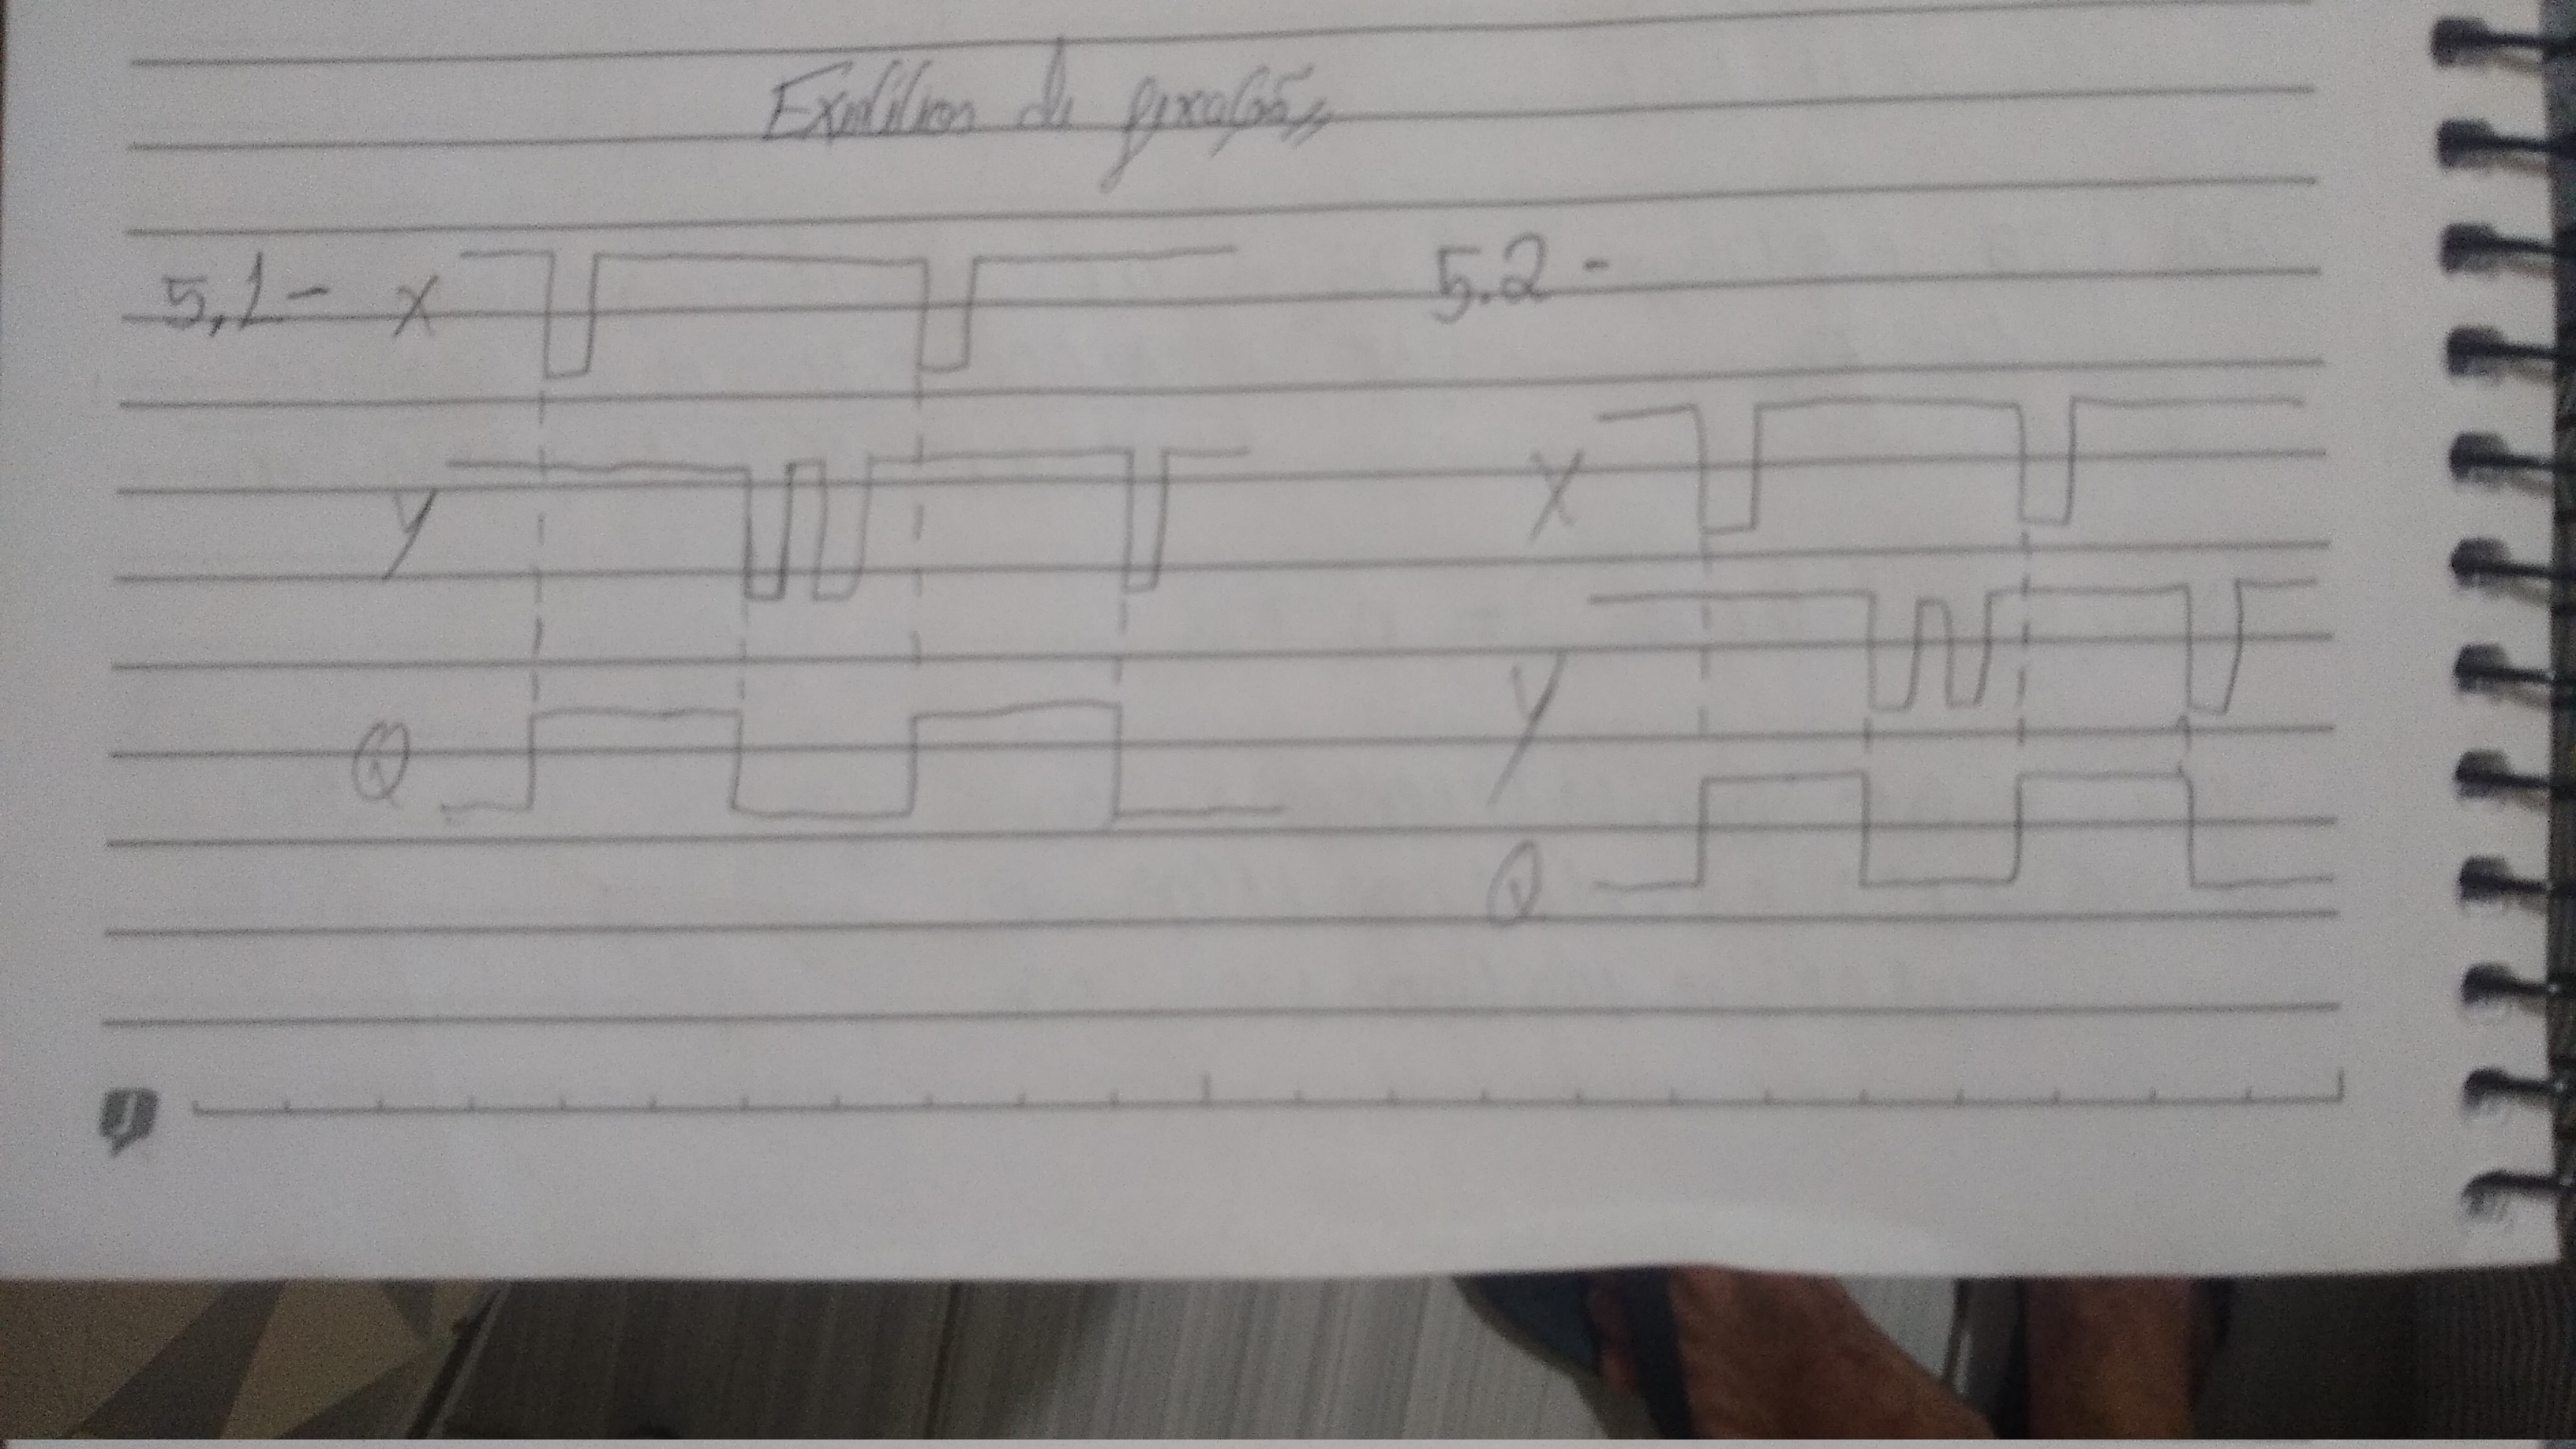 Exercícios de fixação
5.1 - X
Y
Q
5.2 -
X
Y
Q